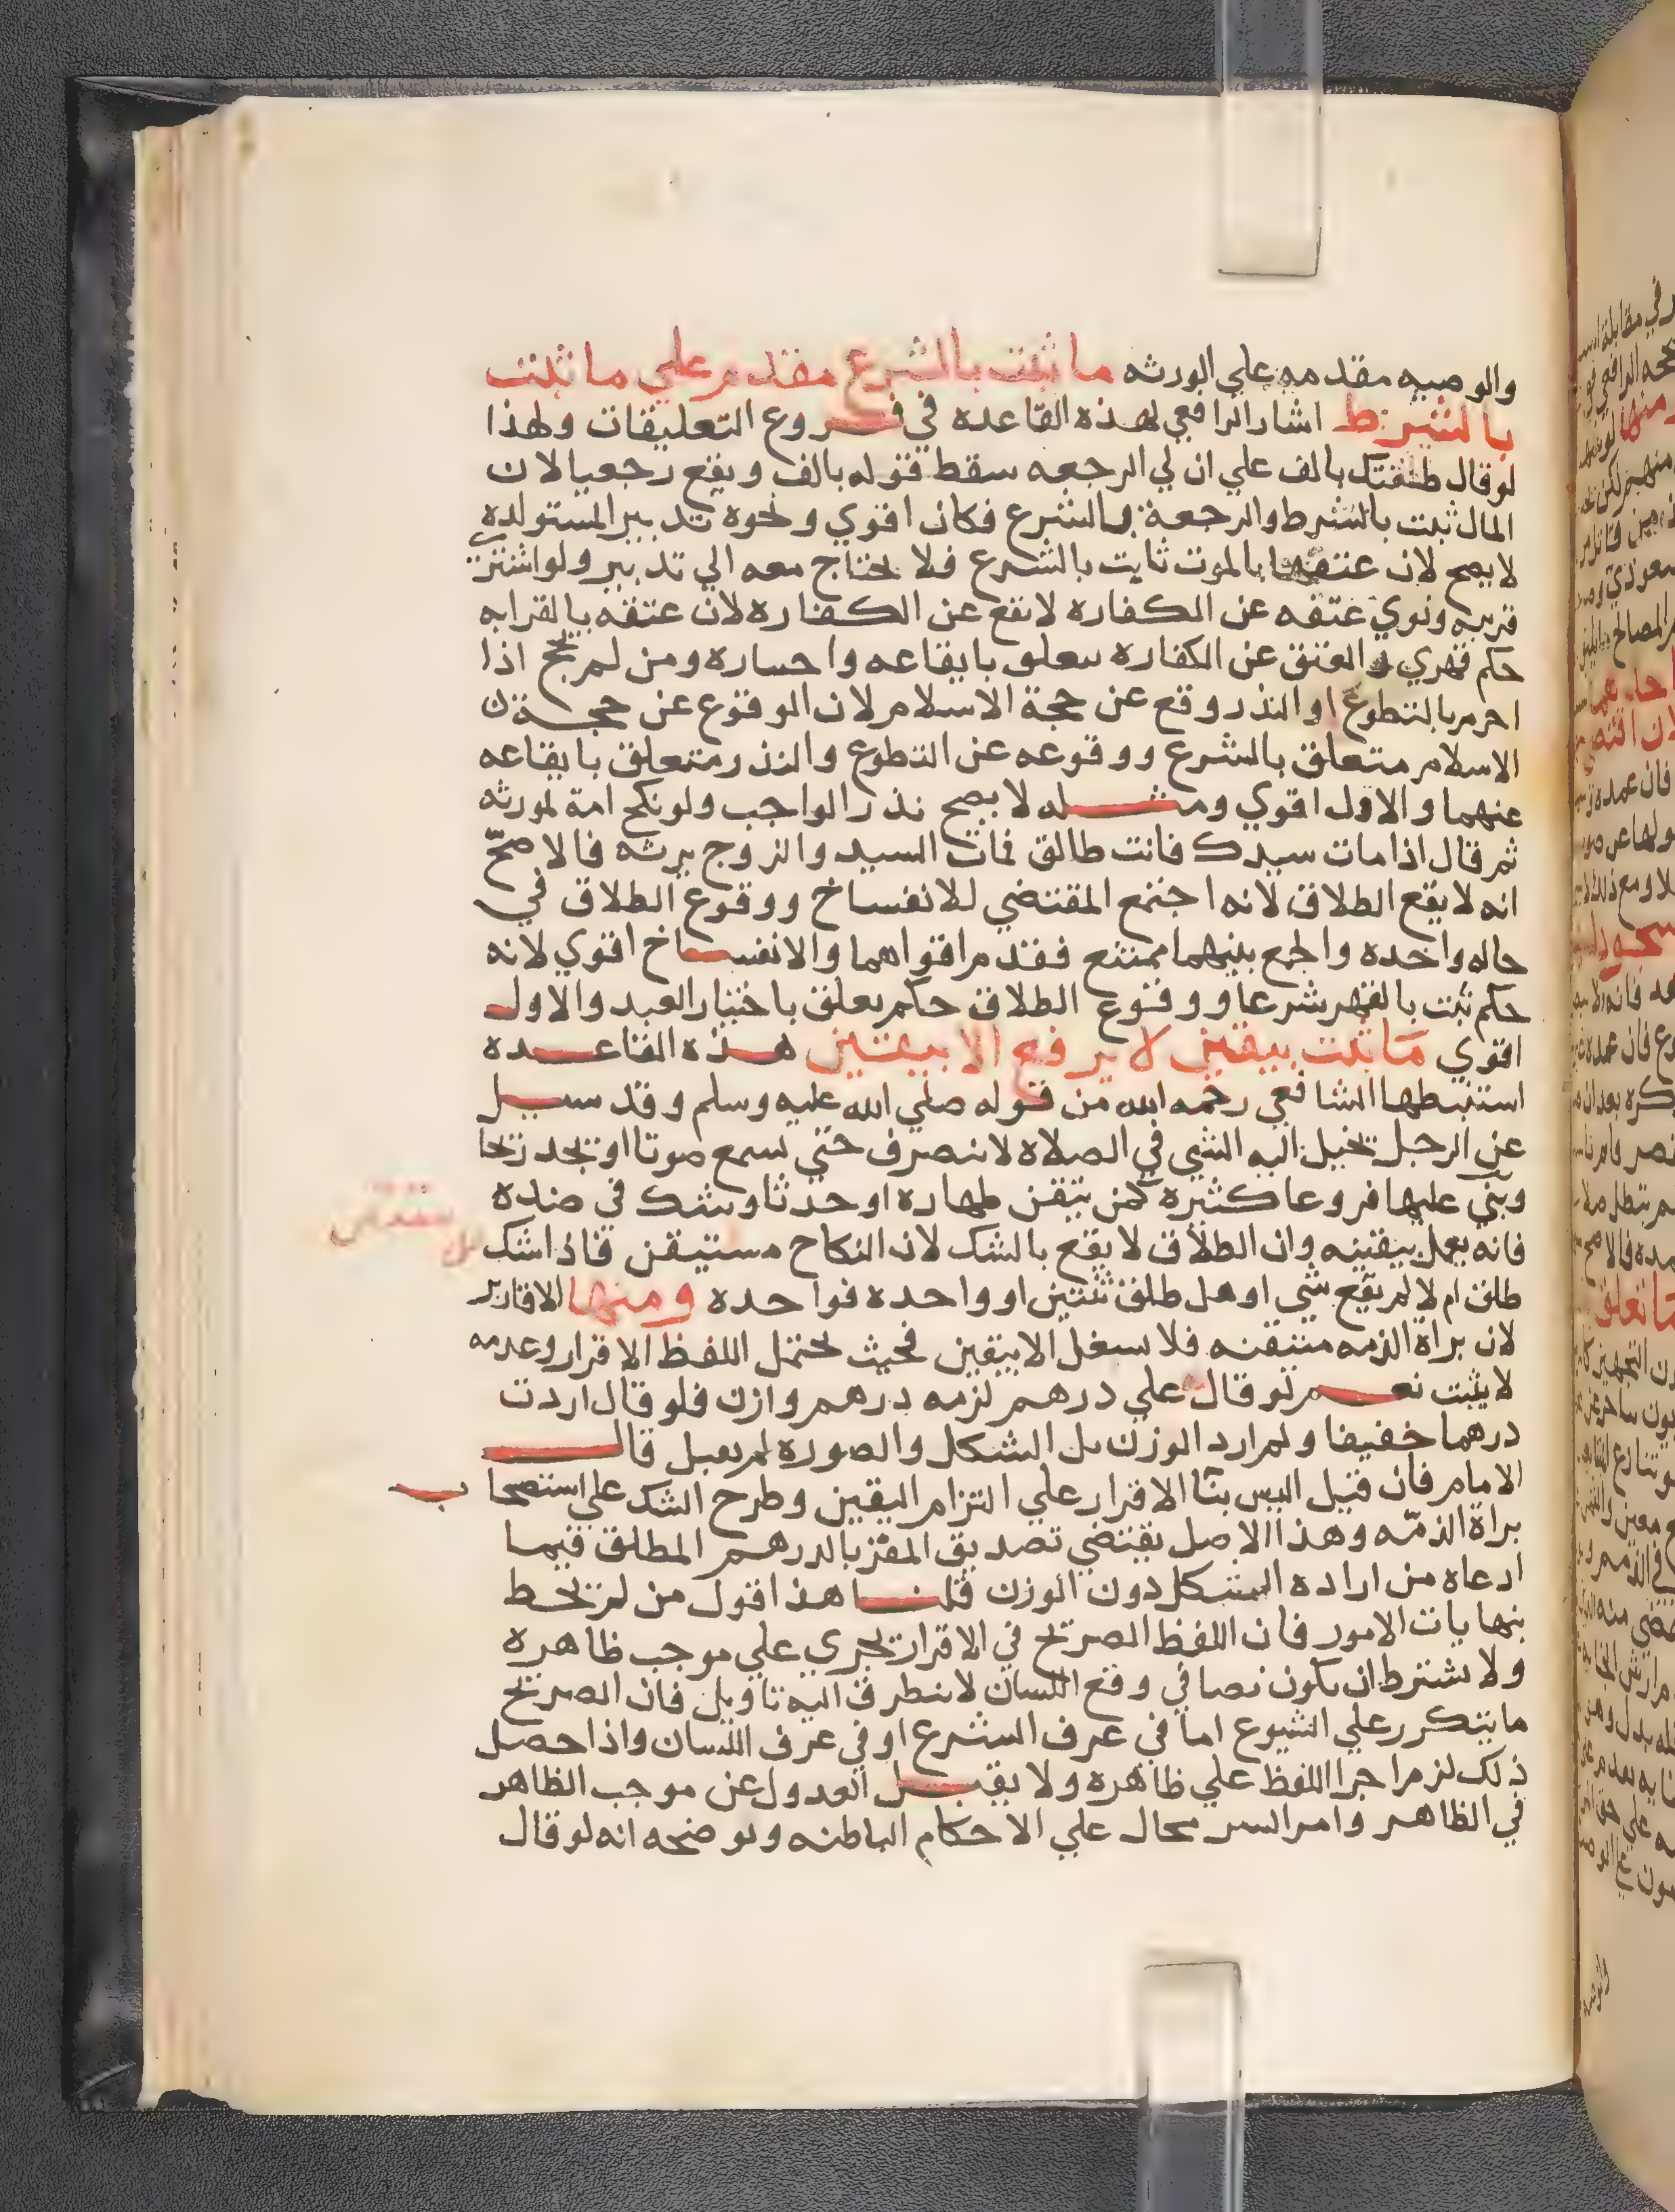 والوصيه مقدمه علي الورثه ما ثبت بالشرع مقدم علي ما ثبت
بالشرط اشار الرافعي لهذه القاعده في فروع التعليقات ولهذا
لو قال طلقتك بالف علي ان لي الرجعه سقط قوله بالف ويقع رجعيا لان
المال ثبت بالشرط والرجعة بالشرع فكان اقوي ونحوه تدبير المستولده
لا يصح لان عتقها بالموت ثابت بالشرع فلا يحتاج معه الي تدبير ولو اشتري
قريبه ونوي عتقه عن الكفاره لا يقع عن الكفاره لان عتقه بالقرابه
حكم قهري والعتق عن الكفاره يتعلق بايقاعه واختياره ومن لم يحج اذا
احرم بالتطوع او النذر وقع عن حجة الاسلام لان الوقوع عن حجة
الاسلام متعلق بالشرع ووقوعه عن التطوع والنذر متعلق بايقاعه
عنهما والاول اقوي ومثله لا يصح نذر الواجب ولو نكح امة لمورثه
ثم قال اذا مات سيدك فانت طالق فمات السيد والزوج يرثه فالاصح
انه لا يقع الطلاق لانه اجتمع المقتضي للانفساخ ووقوع الطلاق في
حاله واحده والجمع بينهما ممتنع فقدم اقواهما والانفساخ اقوي لانه
حكم ثبت بالقهر شرعا ووقوع الطلاق حكم تعلق باختيار العبد والاول
اقوي ما ثبت بيقين لا يرفع الا بيقين هذه القاعده
استنبطها الشافعي رحمه الله من قوله صلي الله عليه وسلم وقد سيل
عن الرجل يخيل اليه الشي في الصلاه لا ينصرف حتي يسمع صوتا او يجد ريحا
وبني عليها فروعا كثيرة كمن تيقن طهاره او حدثا وشك في ضده
فانه يعمل بيقينه وان الطلاق لا يقع بالشك لان النكاح مستيقن فاذا شك هل
طلق ام لا لم يقع شي او هل طلق ثنتين او واحده فواحده ومنها الاقارير
لان براة الذمه متيقنه فلا تشغل الا بيقين فحيث يحتمل اللفظ الاقرار وعدمه
لا يثبت نعم لو قال علي درهم لزمه درهم وازن فلو قال اردت
درهما خفيفا ولم ارد الوزن بل الشكل والصوره لم يقبل قال
الامام فان قيل اليس بنا الاقرار علي التزام اليقين وطرح الشك علي استصحاب
براة الذمه وهذا الاصل يقتضي تصديق المقر بالدرهم المطلق فيما
ادعاه من اراده الشكل دون الوزن قلنا هذا قول من لم يحط
بنهايات الامور فان اللفظ الصريح في الاقرار يجري علي موجب ظاهره
ولا يشترط ان يكون نصا في وقع اللسان لا يتطرق اليه تاويل فان الصريح
ما يتكرر علي الشيوع اما في عرف الشرع او في عرف اللسان واذا حصل
ذلك لزم اجرا اللفظ علي ظاهره ولا يقبل العدول عن موجب الظاهر
في الظاهر وامر السر محال علي الاحكام الباطنه ويوضحه انه لو قال